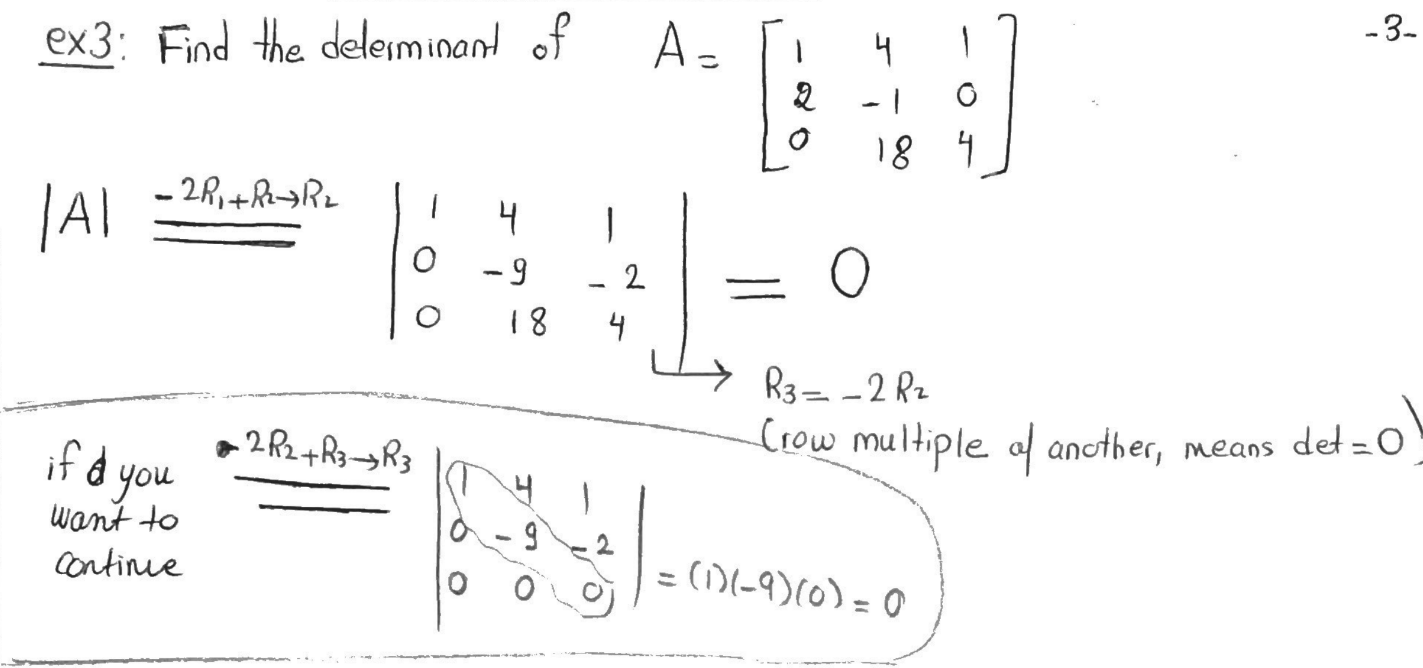 ex3: Find the determinant of A = [ 1 4 1
2 -1 0
0 18 4 ]
-3-
|A| -2R₁+R₂→R₂ | 1 4 1
0 -9 -2
0 18 4 | = 0
R₃ = -2R₂
(row multiple of another, means det = 0)
if you
want to
continue
2R₂+R₃→R₃
| 1 4 1
0 -9 -2
0 0 0 | = (1)(-9)(0) = 0